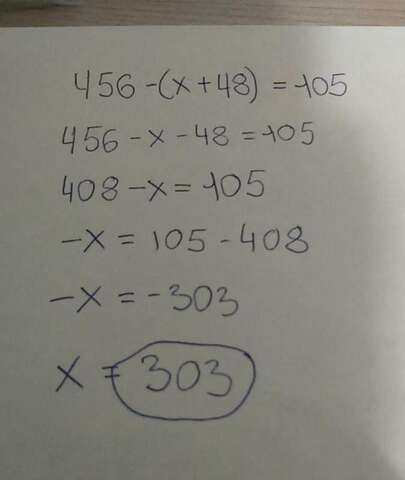 456-(x+48)=105
456-x-48=105
408-x=105
-x=105-408
-x=-303
x=303